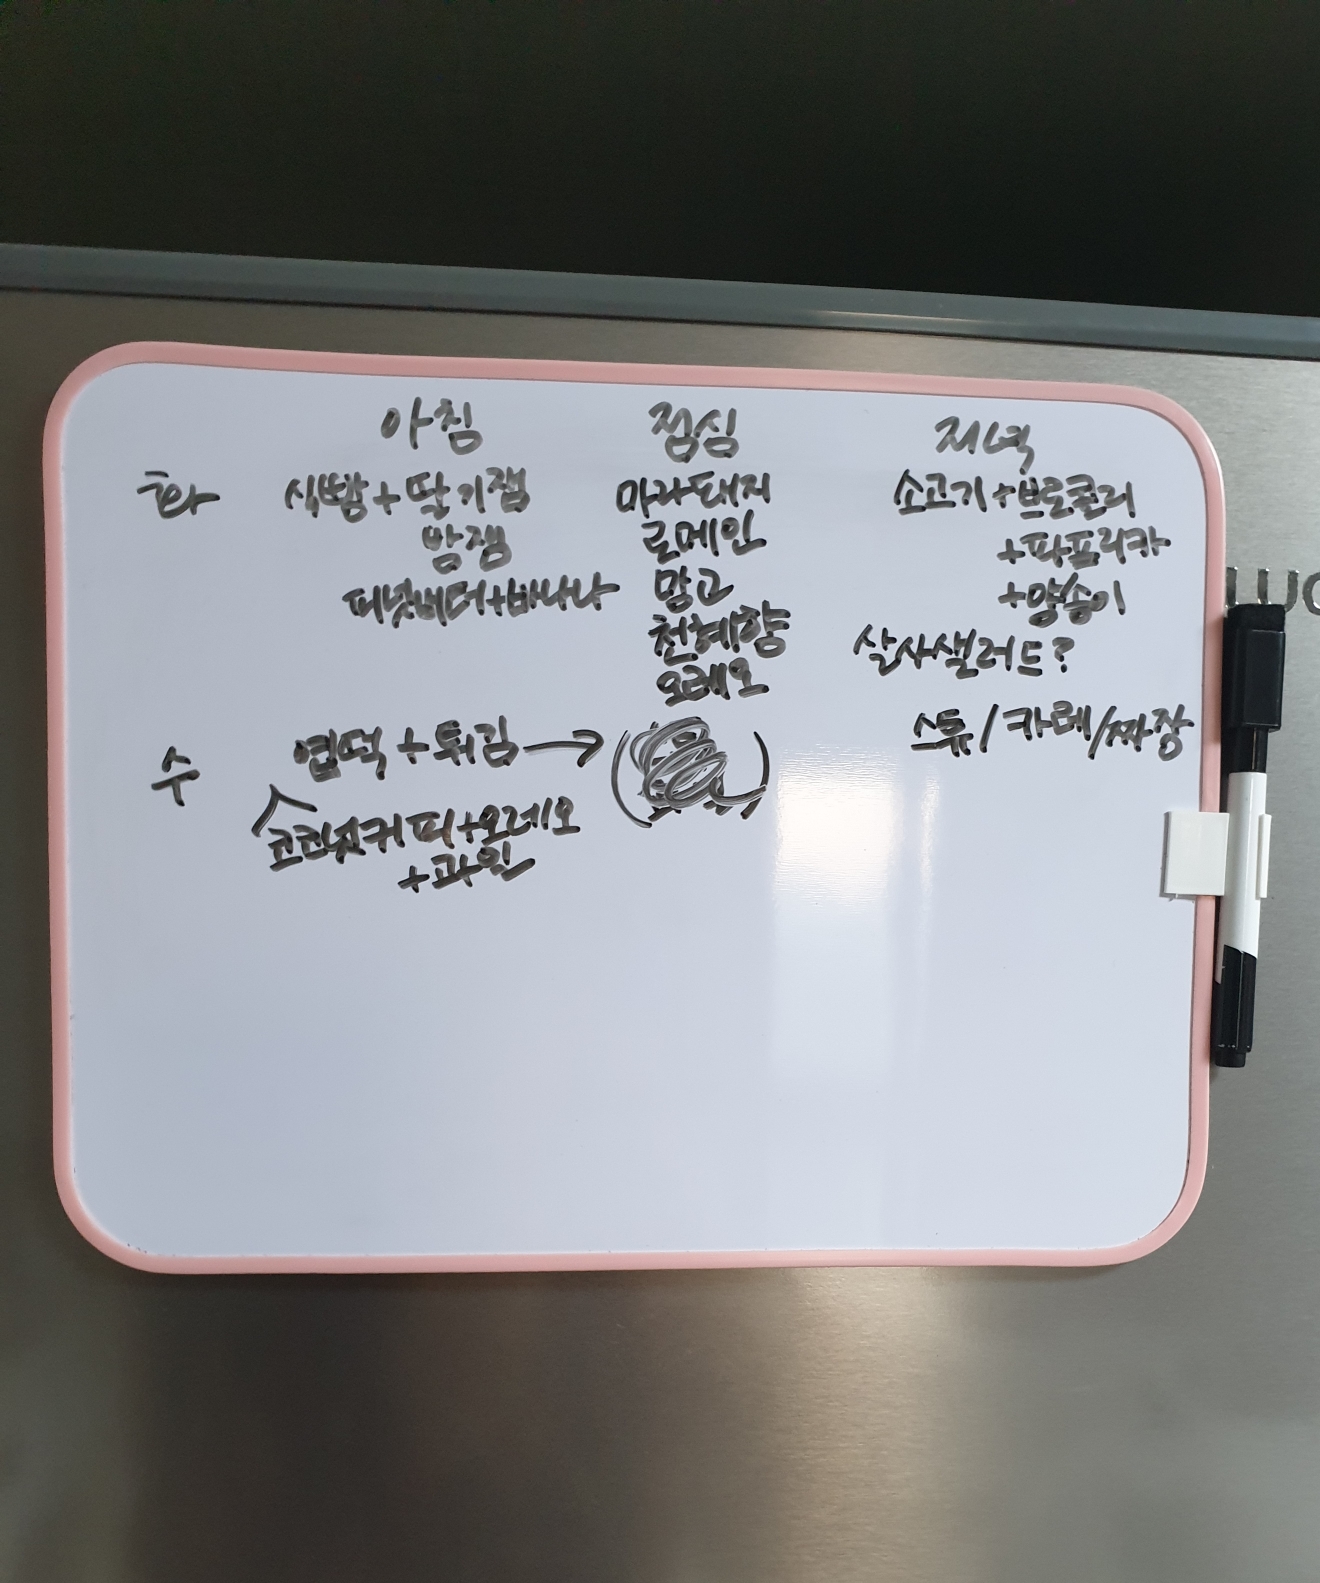 아침 점심 저녁
화 식빵+딸기잼 마라돼지 소고기+브로콜리
밤잼 로메인 +파프리카
피넛버터+바나나 망고 +양송이
천혜향 살사샐러드?
오레오
수 엽떡+튀김→( ) 스튜/카레/짜장
코코넛커피+오레오
+과일